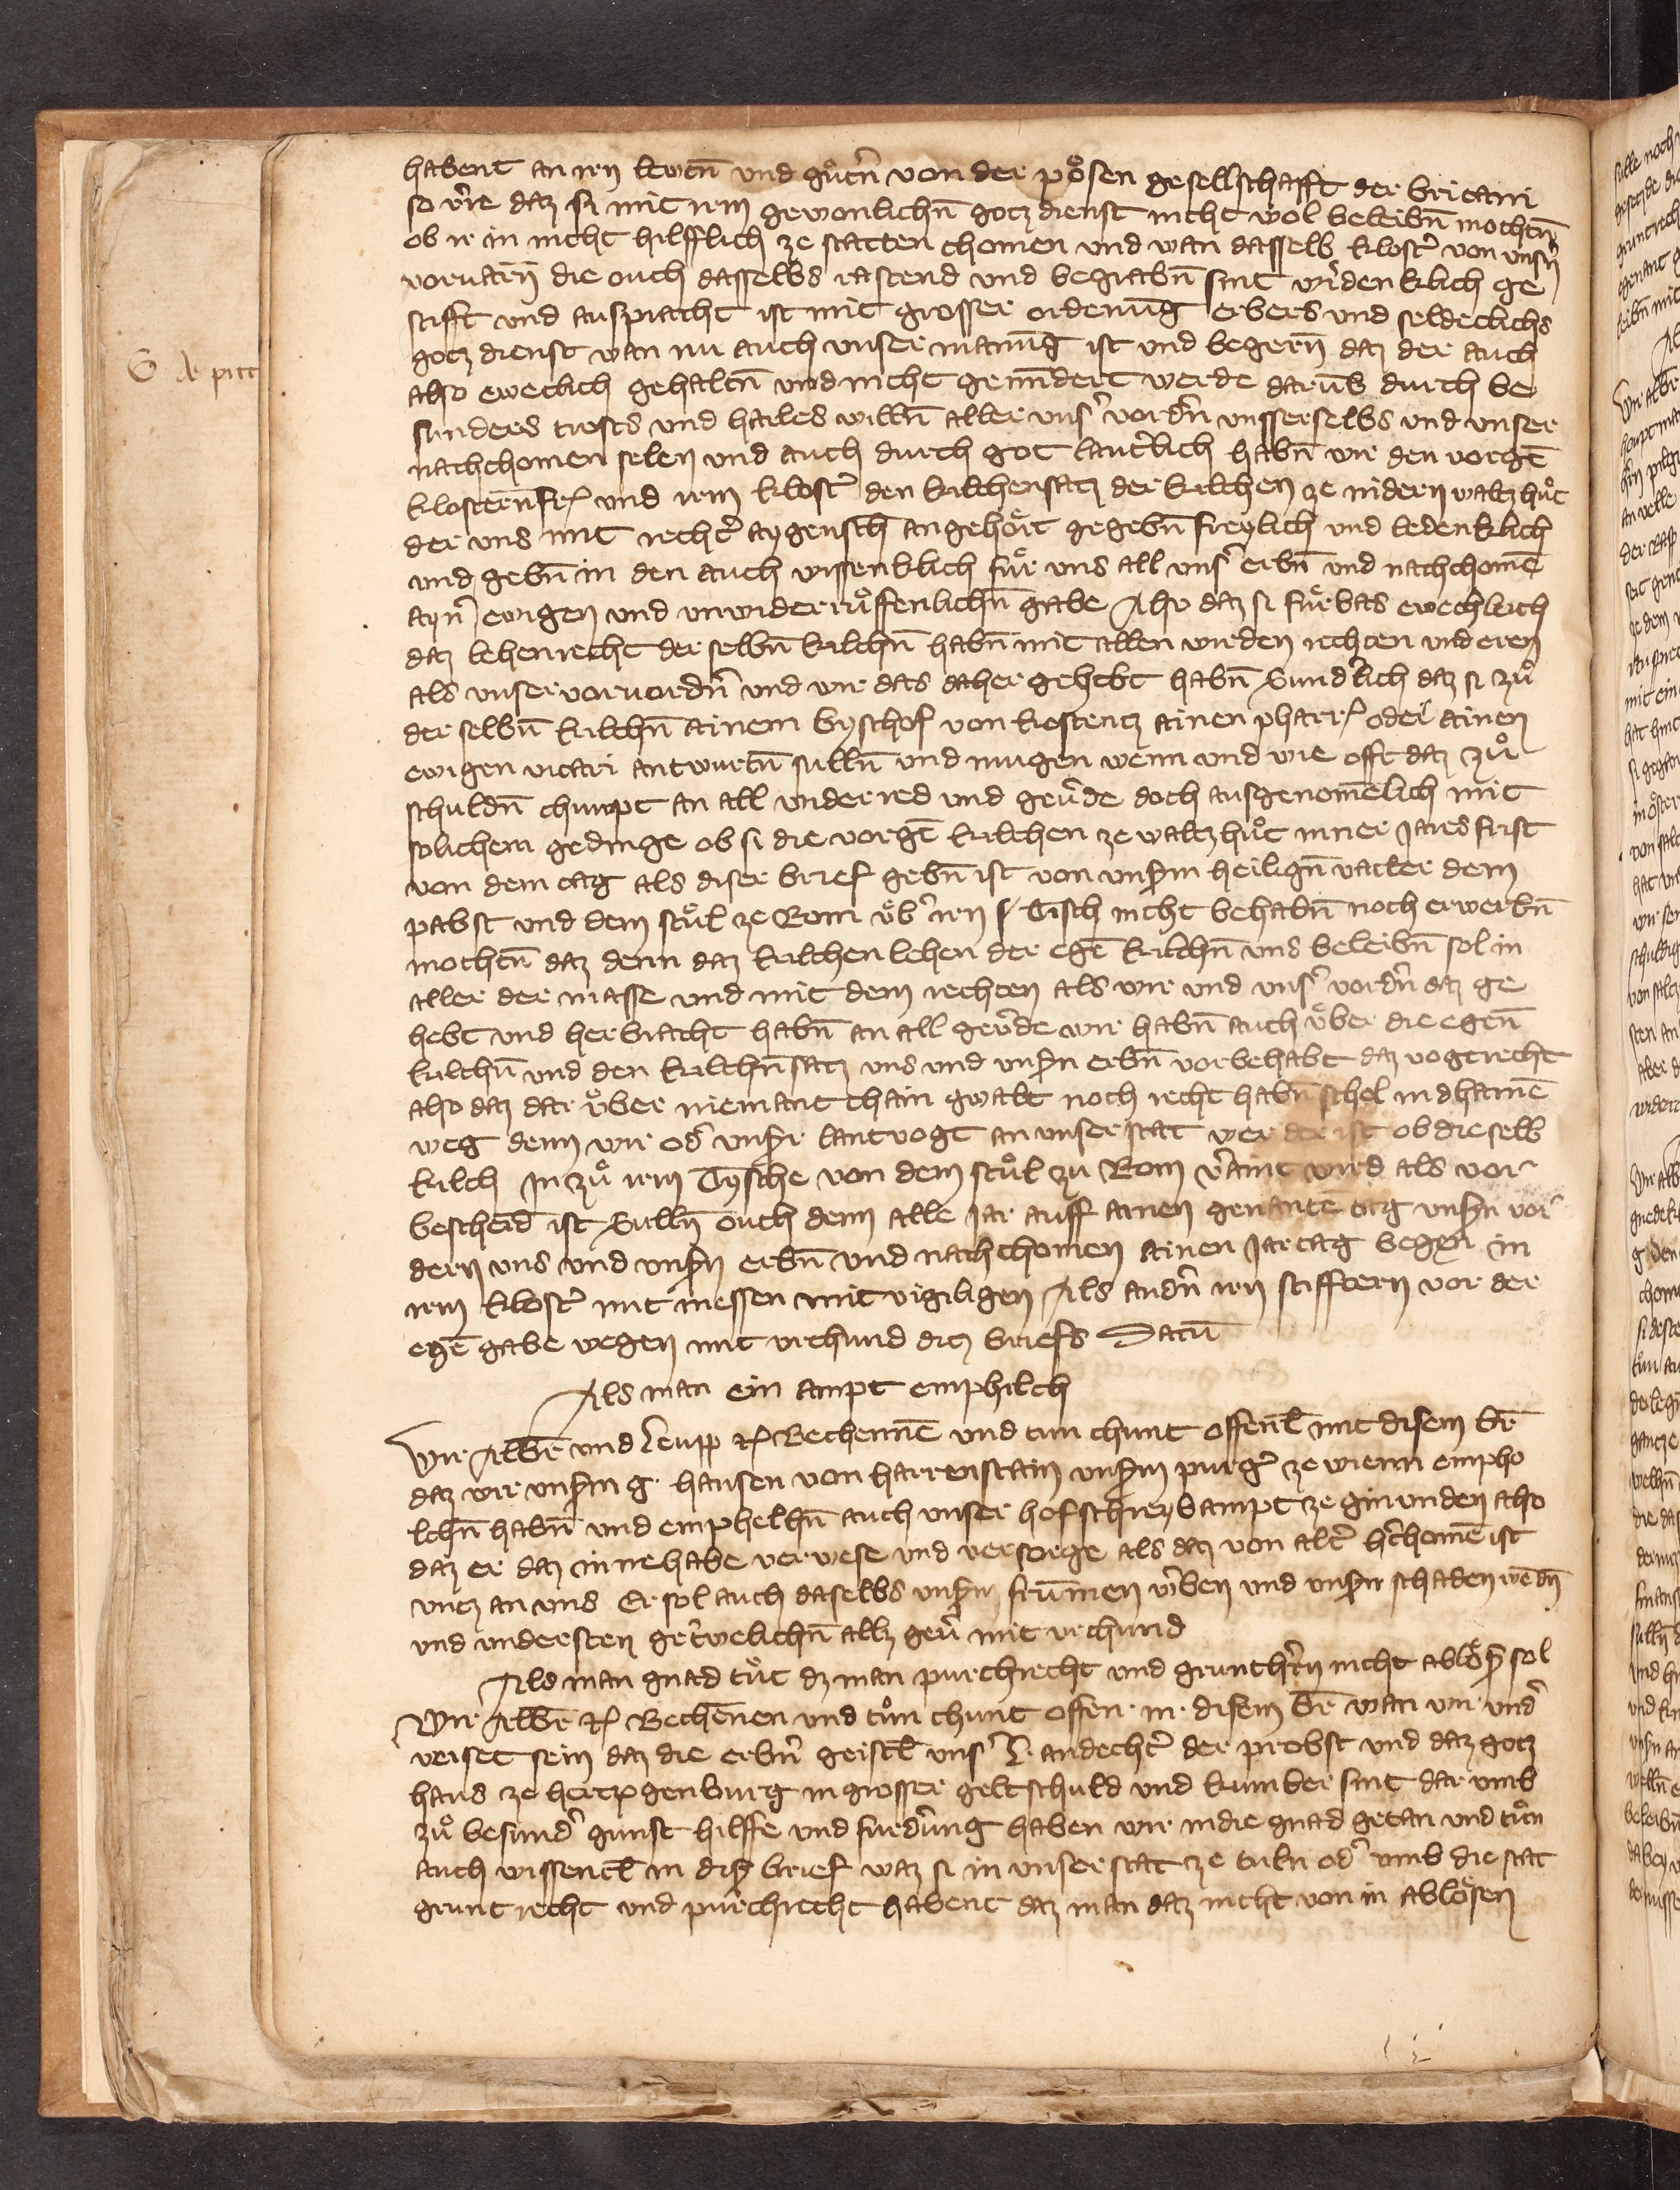 habent an irn lewtn̄ und guͦtn̄ von der poͤsen gesellschafft der britani
so vĕre daz si mit irm gewonlichn̄ gotz dienst nicht wol beleibn̄ mochtn̄
ob ir in nicht hilfflich ze statten chomen und wan dasselb Klostʼ von unsʼn
vorvarn̄ die ouch dasselbs rastend und begrabn̄ sint wrʼdenklich ge
stifft und auspracht ist mit grosser ordenūg erbers und seldeclichs
gotz dienst wan nu auch unser manūg ist und begern̄ daz der auch
also eweclich gehaltn̄ und nicht gemīdert werde darūb durch be
sunders trosts und hailes willn̄ aller unsʼ vordʼn unsserselbs und unser
nachchomen selen und auch durch got lautʼlich habn̄ wir den vorgē
klosterūfrʼ und irm klostʼ den kilchensatz der kilchen ze nidern waltzhuͦt
der uns mit rechtʼ aygensch̄ angehoͤrt gegebn̄ freylich und ledenklich
und gebn̄ in den auch wissenklich fuͤr uns all unsʼ erbn̄ und nachchomē
aynʼ ewigen und unwiderruͤffenlichn̄ gabe Also daz si fuͤrbas ewechlich
daz lehenrecht der selbn̄ kilchn̄ habn̄ mit allen wirden rechten und eren
als unser vorvordʼn und wir das daher gehebt habn̄ Sundʼlich daz si zuͦ
der selbn̄ kilchn̄ ainem byschof von kostentz ainen pharrʼ oder ainen
ewigen vicari antwurtn̄ sulln̄ und mugen wenn und wie offt daz zuͦ
schuldn̄ chumpt an all underred und gevʼde doch ausgenomēlich mit
solichem gedinge ob si die vorgē kilchen ze waltzhuͦt inner jares frist
von dem tag als diser brief gebn̄ ist von unsʼm heilign̄ vatter dem
pabst und dem stuͤl ze Rom uͤbʼ irn Tisch nicht behabn̄ noch erwerbn̄
mochtn̄ daz denn daz kilchenlehen der egē kilchn̄ uns beleibn̄ sol in
aller der masse und mit dem rechten als wir und unsʼ vordʼn daz ge
hebt und herbracht habn̄ an all gevʼde wir habn̄ auch uͤber die egen̄
kilchn̄ und den kilchn̄satz uns und unsʼn erbn̄ vorbehabt daz vogtrecht
also daz dar uͤber niemant chain gwalt noch recht habn̄ schol in dhainē
weg denn wir odʼ unsʼr lantvogt an unser stat wer der ist ob dieselb
kilch In zuͦ irm Tysche von dem stuͦl zu Rom vʼaint wird als vor
bescheid ist Sulln̄ ouch denn alle jar auff ainen genantē tag unsʼn vor
dern uns und unsʼn erbn̄ und nachchomen ainen jartag begen in
irm klostʼ mit messen mit vigiligen Als andʼn irn stifftern vor der
egē gabe wegen mit urchund ditz briefs Datū
Als man ein ampt emphilch
Wir Albrē und Leupp ꝛc Bechennē und tun chunt offenl̄ mit disem br̄
daz wir unsʼm g. hansen von harrenstain unsʼm purgʼ ze wienn empho
lchn̄ habn̄ und emphelhn̄ auch unser hofschreybampt ze gmunden also
daz er daz innehabe verwese und versorge als daz von altʼ hʼchomē ist
untz an uns Er sol auch daselbs unsʼm frūmen wʼben und unsʼn schaden wēdn̄
und understen getʼwelichn̄ allz gevʼ mit urchund
Als man gnad tuͦt dz man purchrecht und grunthʼrn nicht abloͤsʼ sol
Wir Albrē ꝛc Bechēnen und tuͦn chunt offen. m. disem br̄ wan wir undʼ
veiset sein daz die erbn̄ geistl̄ unsʼ L. andechtʼ der probst und daz gotz
haus ze hertzogenburg in grosser geltschuld und kumber sint dar umb
zuͦ besundʼ gunst hilffe und furdʼung haben wir in die gnad getan und tuͦn
auch wissentl̄ in disʼ brief waz si in unser stat ze tuln odʼ umb die stat
grunt recht und purchrecht habent daz man daz nicht von in abloͤsen